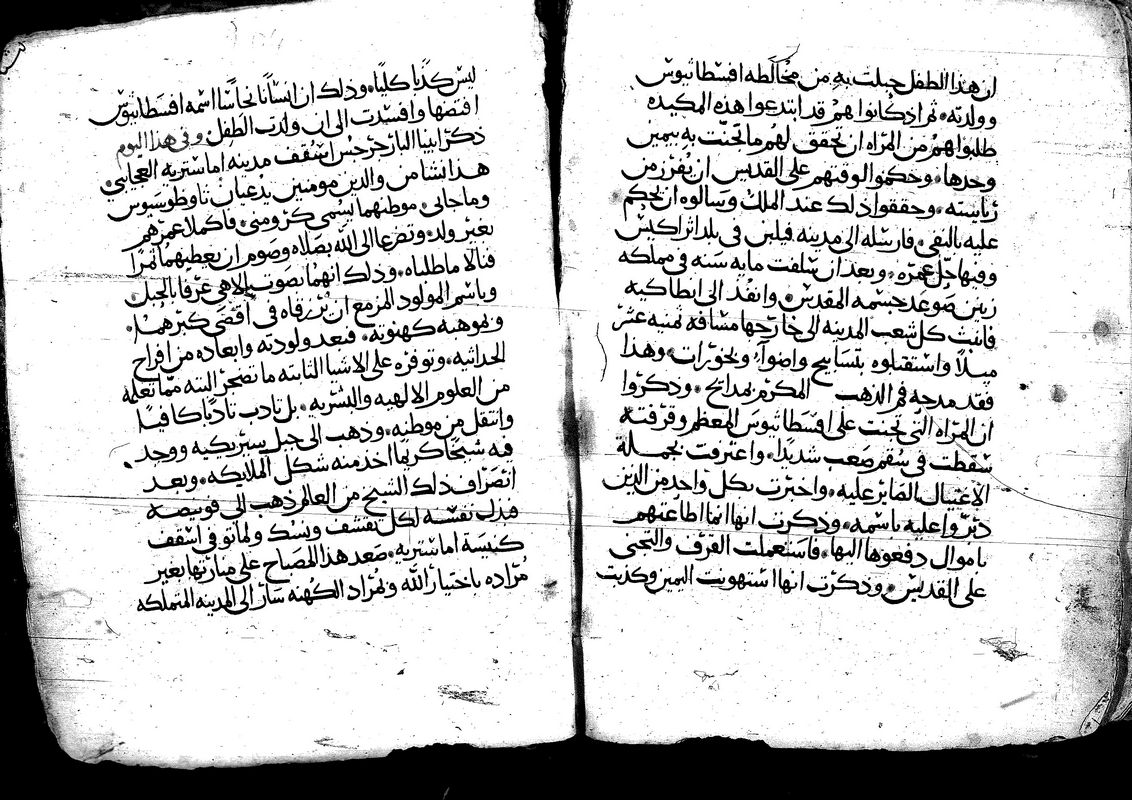 ان هذا الطفل حبلت به من مخالطه افسطاثيوس
وولدته، ثم اذ كانوا هم قد ابتدعوا هذه المكيده
طلبوا هم من المراه ان تحقق لهم ما تجنت به بيمين
وحدها، وحكموا لوقتهم على القديس ان يفرز من
رياسته، وحققوا ذلك عند الملك وسالوه ان يحكم
عليه بالنفى، فارسله الى مدينه فيلبس فى بلد اثراكيس
وفيها حل عمره، وبعد ان سلفت مايه سنه فى مملكه
زينن صوعد جسمه المقدس، وانفذ الى انطاكيه
فانبث كل شعب المدينه الى خارجها مسافه ثمنيه عشر
ميلاً واستقبلوه بتسابيح واضواء، وبخورات، وهذا
فقد مدحه فم الذهب المكرم بمدائح، وذكروا
ان المراه التى تجنت على افسطاثيوس المعظم وقرفته
سقطت فى سقم صعب شديدًا، واعترفت بجملة
الاغتيال الصاير عليه، واخبرت بكل واحد من الذين
دبروا عليه باسمه، وذكرت انها انما اطاعتهم
باموال دفعوها اليها، فاستعملت القرف والتجنى
على القديس، وذكرت انها استهونت اليمين وكذبت
ليس كذبًا كليًا، وذلك ان انسانًا نحاسًا اسمه افسطاثيوس
افتضها وافسدت الى ان ولدت الطفل، وفى هذا اليوم
ذكر ابينا البار جرجس اسقف مدينه اماستريه العجايبى
هذا نشا من والدين مومنين يدعيان ثاوطوسيوس
وماجاثى، موطنهما يسمى كرومنى، فاكملا عمرهم
بغير ولد، وتضرعا الى الله بصلاه وصوم ان يعطيهما ثمرا
فنالا ما طلباه، وذلك انهما بصوت الاهى عرفا بالحبل
وباسم المولود المزمع ان يرزقاه فى اقصى كبرهما،
وبموهبه كهنوته، فبعد ولودته وابعاده من افراح
الحداثيه، وتوفره على الاشيا الثابته ما تضجر البته مما تعلمه
من العلوم الالهيه والبشريه، بل تادب تاديبًا كافيًا
وانتقل من موطنه، وذهب الى جبل سيريكيه ووجد
فيه شيخًا كريمًا اخذ منه شكل الملايكه، وبعد
انصراف ذلك الشيخ من العالم ذهب الى فونيصه
فبذل نفسه لكل تقشف ونسك ولما توفى اسقف
كنيسة اماستريه، صعد هذا المصباح على منارتها بغير
مراده باختيار الله وبمراد الكهنه سار الى المدينه المتملكه